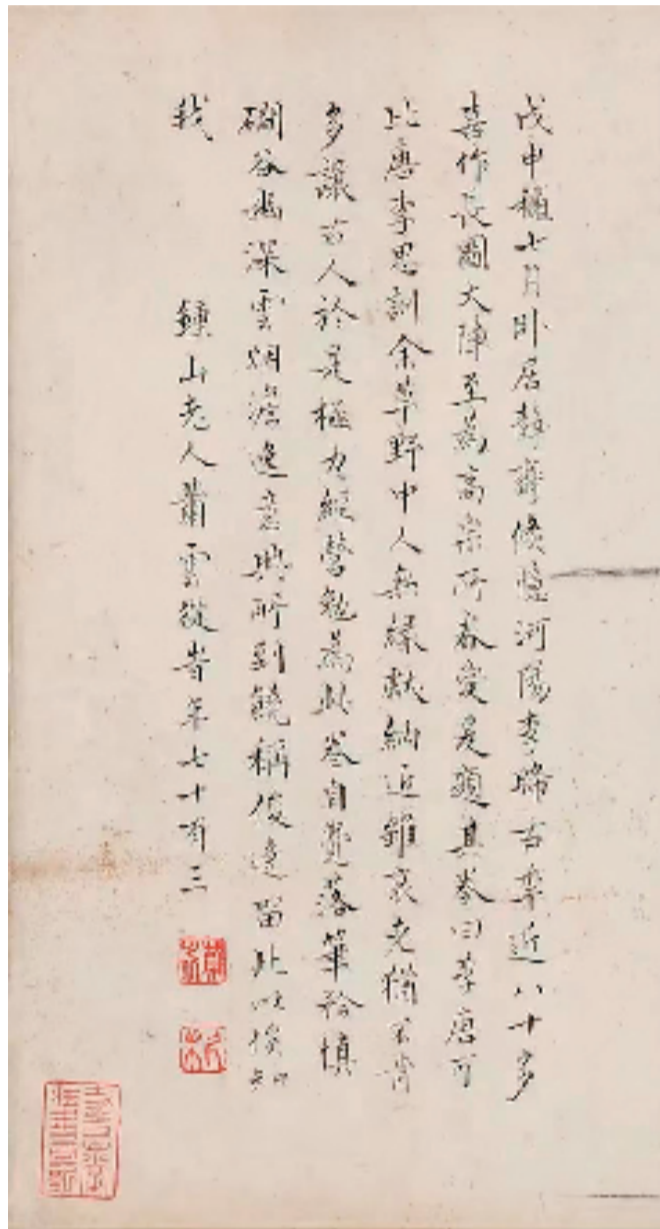 戊申穐七月卧居靜齋倐憶河陽李晞古年近八十多
喜作長圖大障至為高宗所眷愛爰題其卷曰李唐可
比唐李思訓余草野中人無緣獻納近雖衰老猶不肯
多讓古人於是極力經營勉為此卷自覺落筆矜慎
磵谷幽深雲烟澹逸意興所到饒稱俊逸留此以俟知
我 鍾山老人蕭雲從旹年七十有三